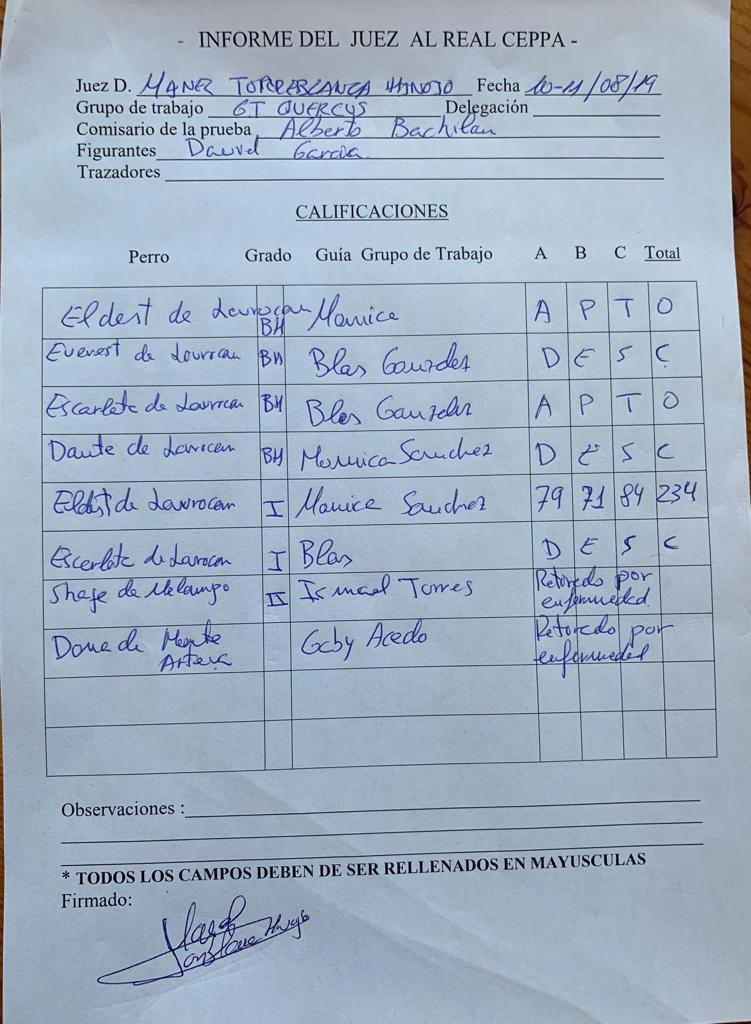 - INFORME DEL JUEZ AL REAL CEPPA -
Juez D. MANEL TORREBLANCA HINOJO Fecha 10-11/08/19
Grupo de trabajo GT QUERCUS Delegación
Comisario de la prueba Alberto
Figurantes Daniel Garcia
Trazadores
CALIFICACIONES
Perro Grado Guía Grupo de Trabajo A B C Total
Eldest de Laurocan BH Monica A P T O
Everest de Lourocan BH Blas D E S C
Escarlata de Lourocan BH Blas A P T O
Dante de Lourocan BH Monica Sanchez D E S C
Eldest de Laurocan I Monica Sanchez 79 71 84 234
Escarlata de Laurocan I Blas D E S C
de Ismael Torres Retirado por
enfermedad
de Monte Gaby Acedo Retirado por
Artera enfermedad
Observaciones :
* TODOS LOS CAMPOS DEBEN DE SER RELLENADOS EN MAYUSCULAS
Firmado: